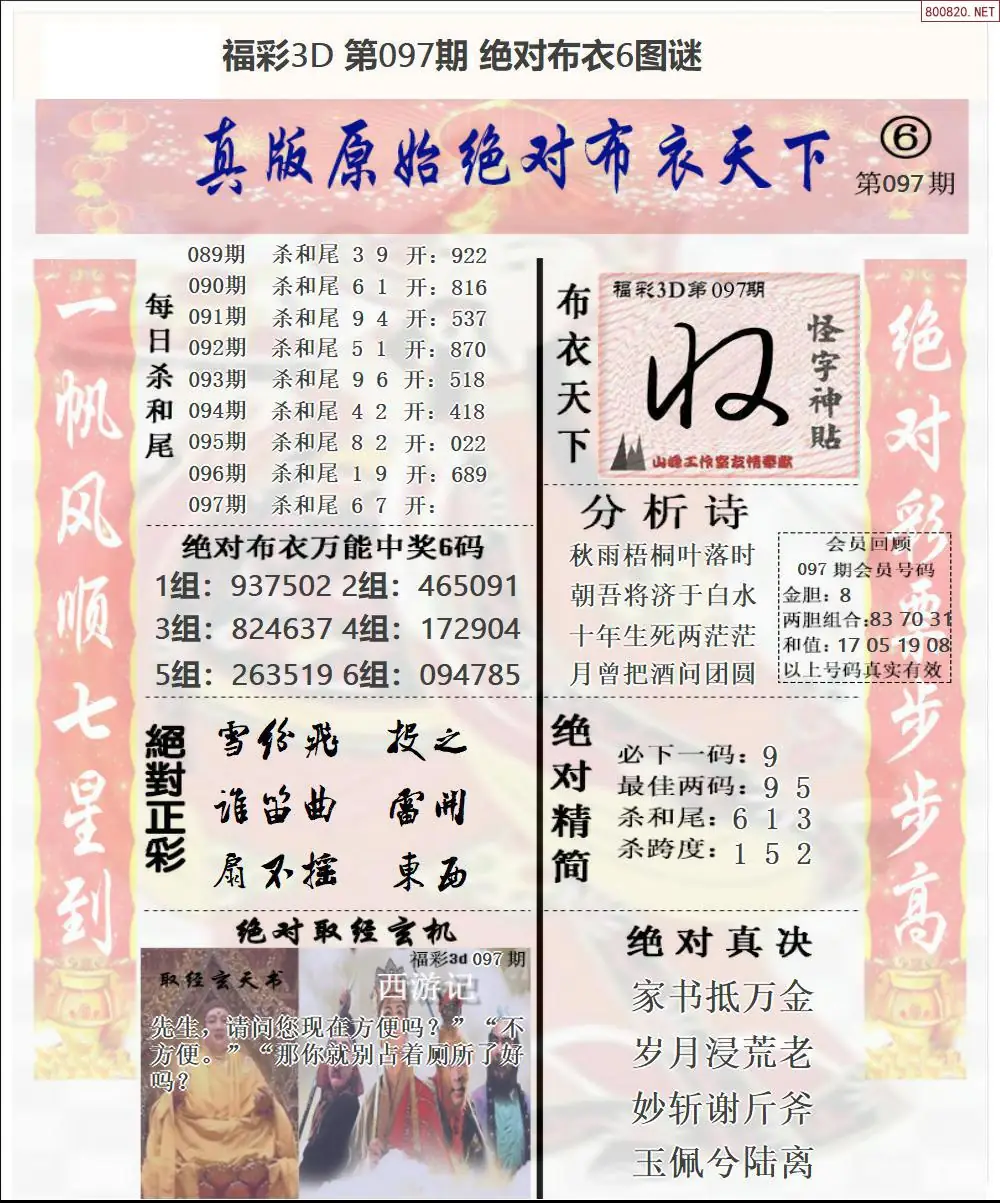 800820.NET
福彩3D 第097期 绝对布衣6图谜
真版原始绝对布衣天下
⑥
第097期
一帆风顺七星到
每日杀和尾
089期 杀和尾 3 9 开：922
090期 杀和尾 6 1 开：816
091期 杀和尾 9 4 开：537
092期 杀和尾 5 1 开：870
093期 杀和尾 9 6 开：518
094期 杀和尾 4 2 开：418
095期 杀和尾 8 2 开：022
096期 杀和尾 1 9 开：689
097期 杀和尾 6 7 开：
绝对布衣万能中奖6码
1组：937502 2组：465091
3组：824637 4组：172904
5组：263519 6组：094785
絕對正彩
雪纷飛 投之
谁笛曲 雷開
扇不摇 東西
绝对取经玄机
福彩3d 097 期
取经玄天书
西游记
先生，请问您现在方便吗？”“不
方便。”“那你就别占着厕所了好
吗？
布衣天下
福彩3D第097期
怪字神贴
山峰工作室友情奉献
分析诗
秋雨梧桐叶落时
朝吾将济于白水
十年生死两茫茫
月曾把酒问团圆
会员回顾
097 期会员号码
金胆：8
两胆组合:83 70 31
和值：17 05 19 08
以上号码真实有效
绝对精简
必下一码：9
最佳两码：9 5
杀和尾：6 1 3
杀跨度：1 5 2
绝对真决
家书抵万金
岁月浸荒老
妙斩谢斤斧
玉佩兮陆离
绝对彩票步步高